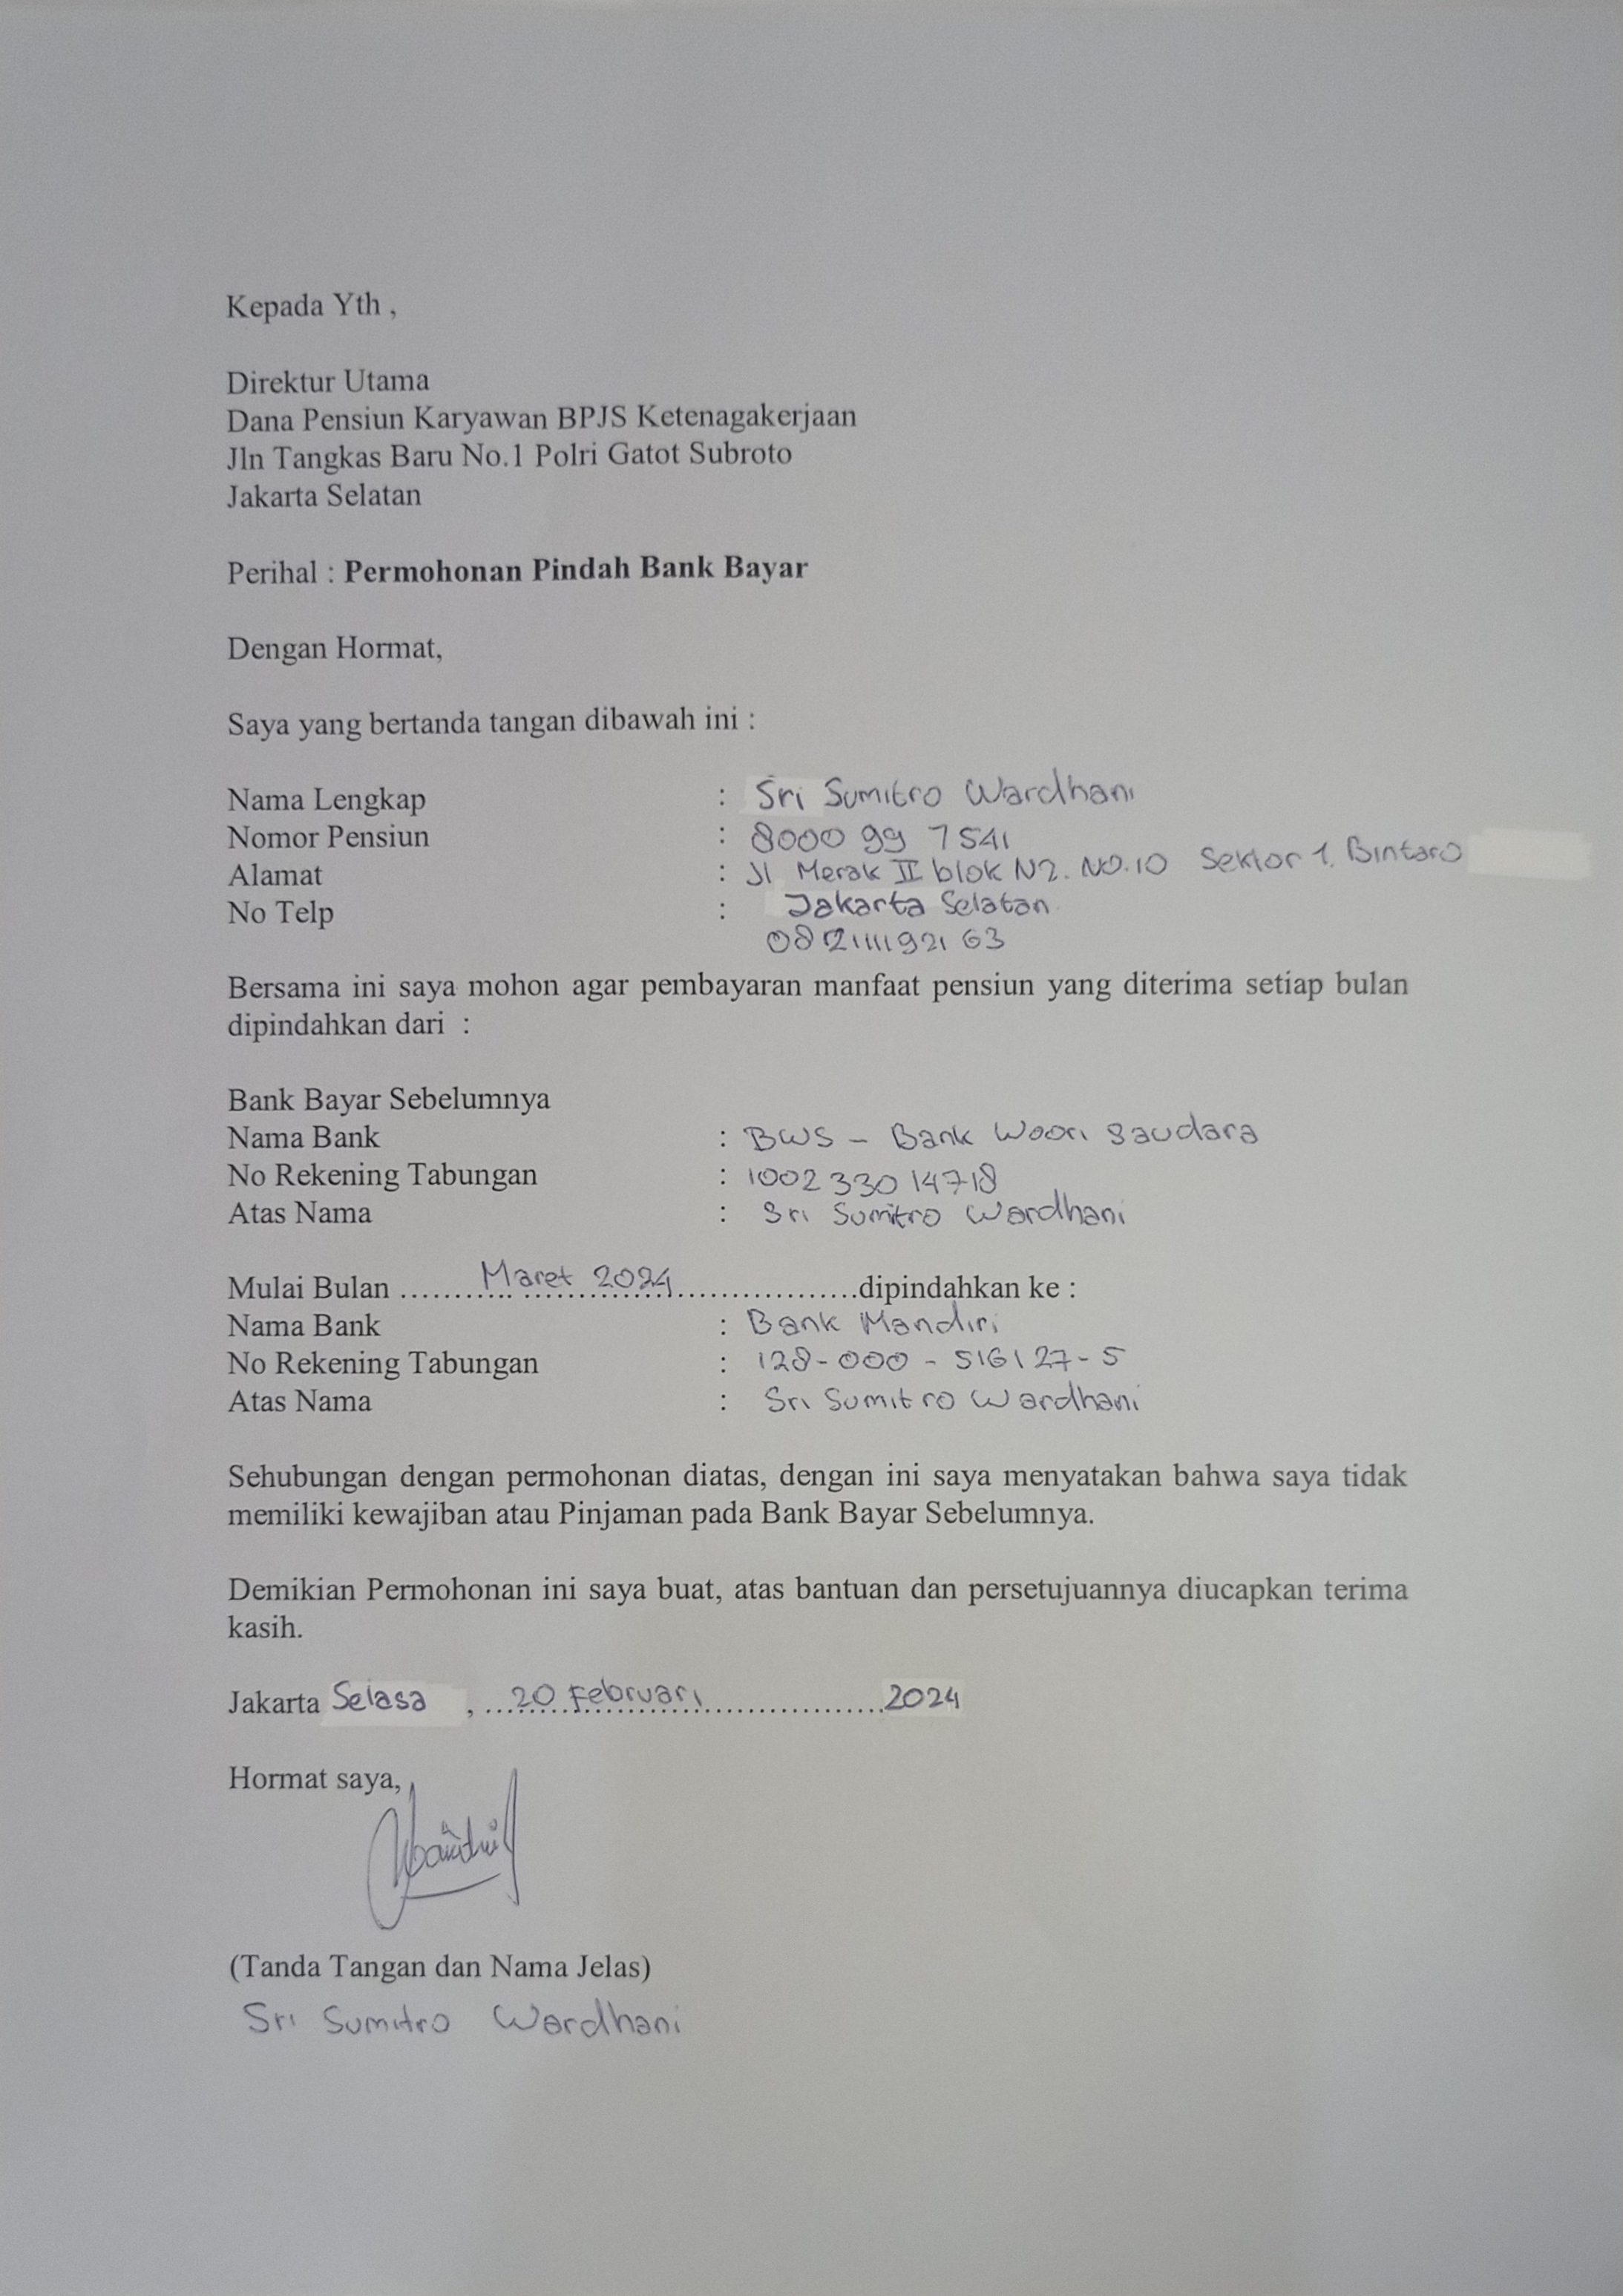 Kepada Yth ,
Direktur Utama
Dana Pensiun Karyawan BPJS Ketenagakerjaan
Jln Tangkas Baru No.1 Polri Gatot Subroto
Jakarta Selatan
Perihal : Permohonan Pindah Bank Bayar
Dengan Hormat,
Saya yang bertanda tangan dibawah ini :
Nama Lengkap : Sri Sumitro Wardhani
Nomor Pensiun : 8000 99 7541
Alamat : Jl Merak II blok N2. NO.10 Sektor 1. Bintaro
No Telp : Jakarta Selatan.
082111192163
Bersama ini saya mohon agar pembayaran manfaat pensiun yang diterima setiap bulan
dipindahkan dari :
Bank Bayar Sebelumnya
Nama Bank : BWS - Bank Woori Saudara
No Rekening Tabungan : 1002 330 14718
Atas Nama : Sri Sumitro Wardhani
Mulai Bulan ........... Maret 2024 .................................dipindahkan ke :
Nama Bank : Bank Mandiri
No Rekening Tabungan : 128-000-516127-5
Atas Nama : Sri Sumitro Wardhani
Sehubungan dengan permohonan diatas, dengan ini saya menyatakan bahwa saya tidak
memiliki kewajiban atau Pinjaman pada Bank Bayar Sebelumnya.
Demikian Permohonan ini saya buat, atas bantuan dan persetujuannya diucapkan terima
kasih.
Jakarta Selasa , ...20 Februari....................2024
Hormat saya,
(Tanda Tangan dan Nama Jelas)
Sri Sumitro Wardhani